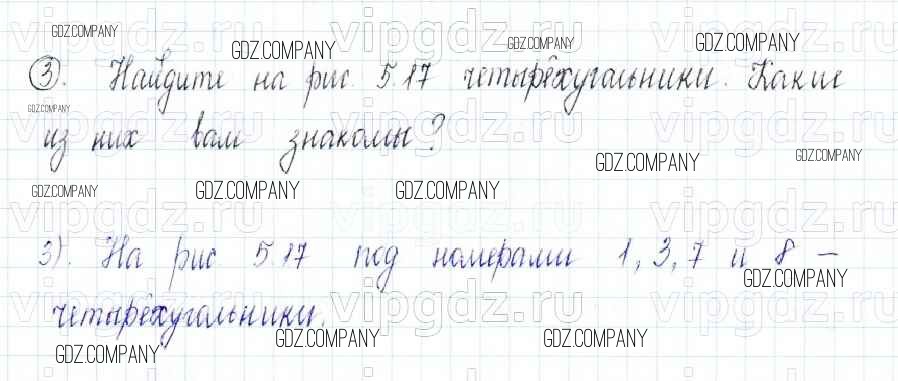 GDZ.COMPANY vipgdz.ru vipgdz.ru vipgdz.ru
GDZ.COMPANY GDZ.COMPANY GDZ.COMPANY
3. Найдите на рис. 5.17 четырёхугольники. Какие
GDZ.COMPANY vipgdz.ru vipgdz.ru vipgdz.ru
из них вам знакомы?
GDZ.COMPANY GDZ.COMPANY
GDZ.COMPANY GDZ.COMPANY GDZ.COMPANY
vipgdz.ru vipgdz.ru vipgdz.ru
3). На рис 5.17 под номерами 1, 3, 7 и 8 –
GDZ.COMPANY
четырёхугольники.
vipgdz.ru vipgdz.ru vipgdz.ru
GDZ.COMPANY GDZ.COMPANY GDZ.COMPANY